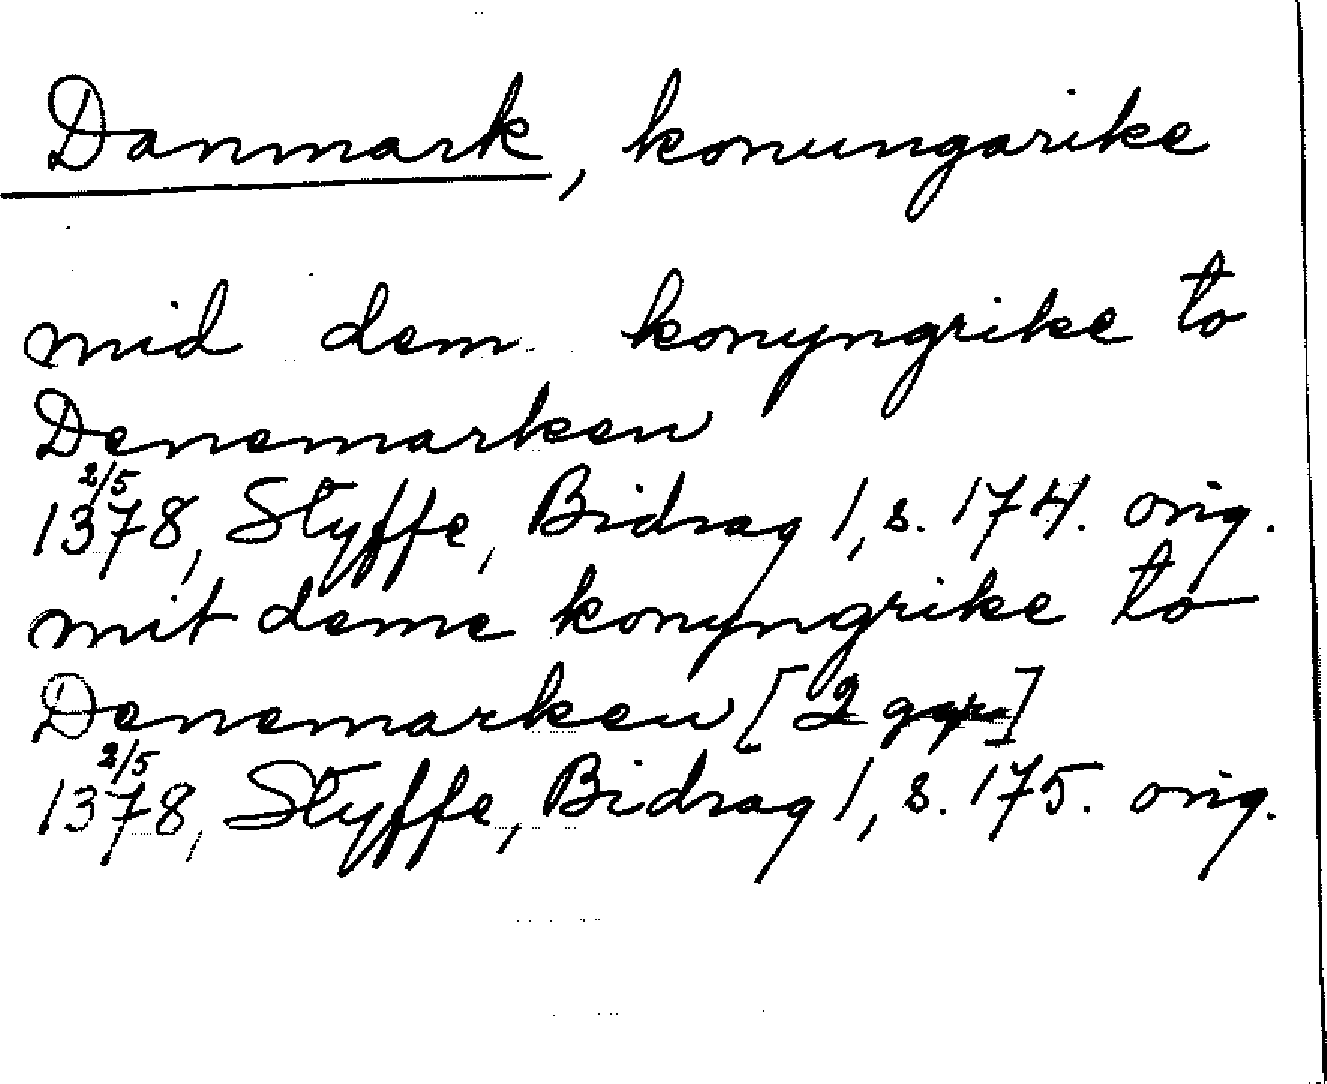 Danmark, konungarike
mid dem konyngrike to
Denemarken
2/5
1378, Styffe, Bidrag 1, s. 174. orig.
mit deme konyngrike to
Denemarken [2 ggr]
2/5
1378, Styffe, Bidrag 1, s. 175. orig.